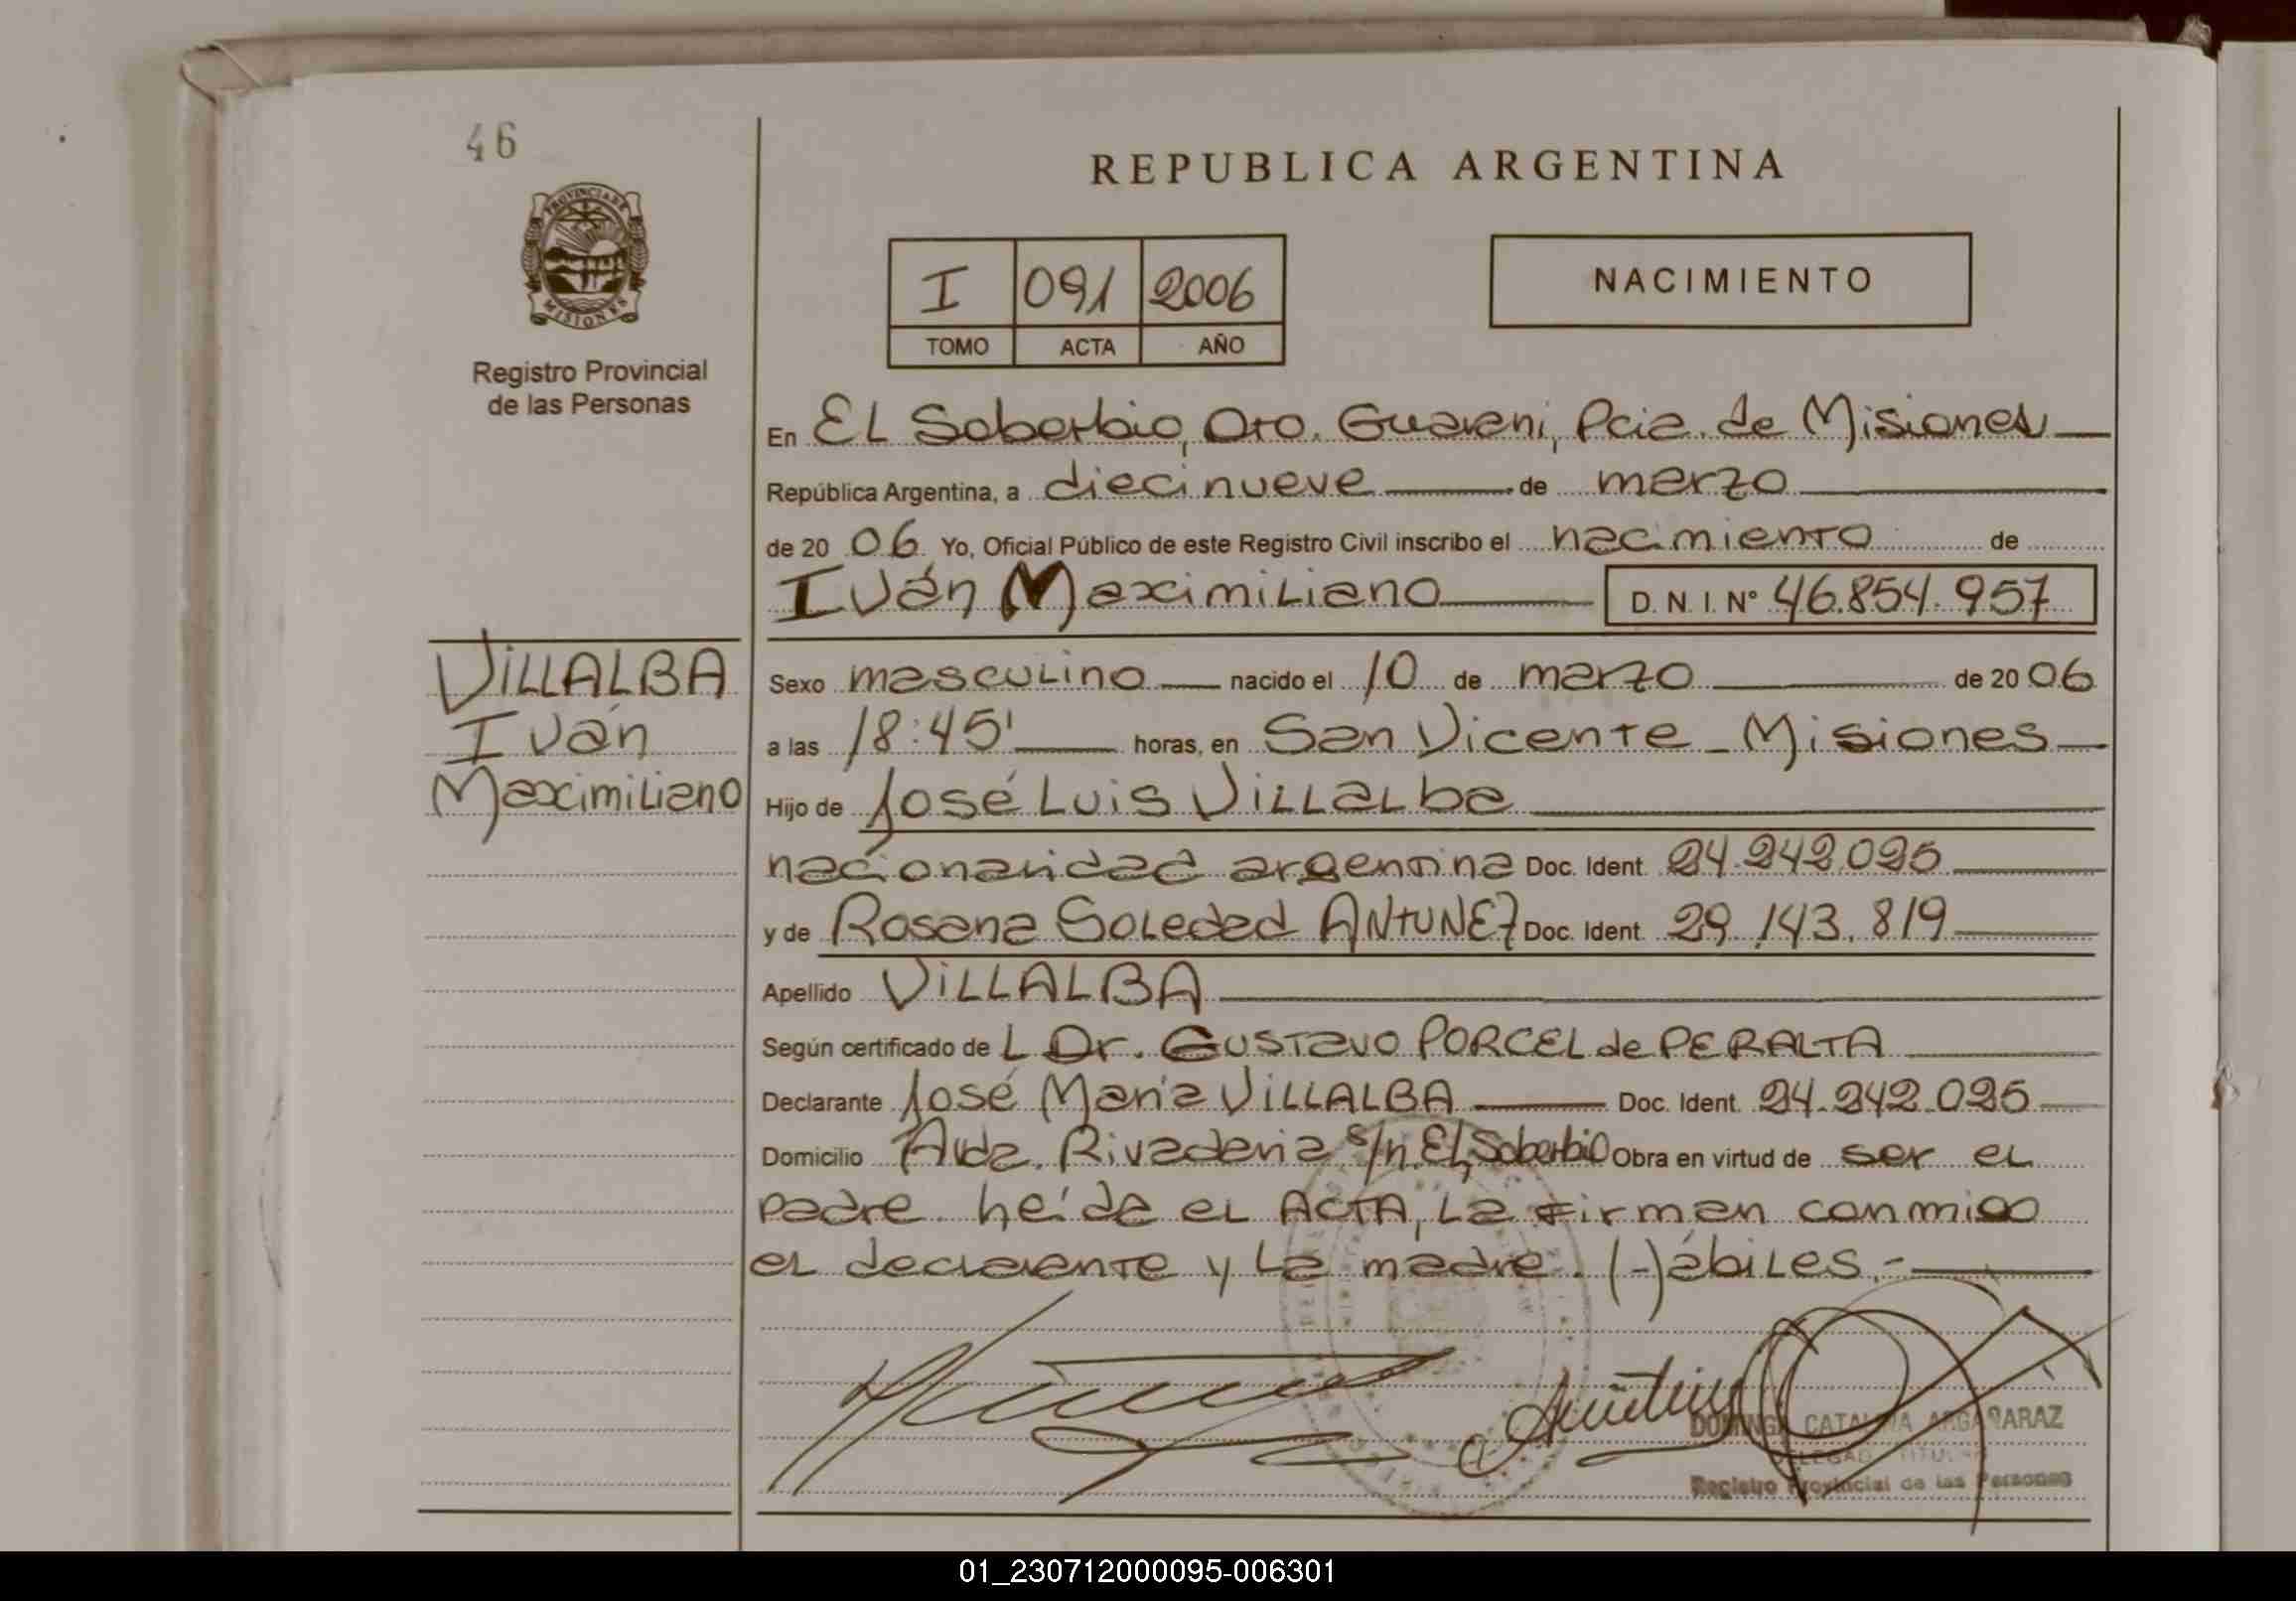 46
PROVINCIA DE
MISIONES
Registro Provincial
de las Personas
REPUBLICA ARGENTINA
I 091 2006
TOMO ACTA AÑO
NACIMIENTO
En EL Soberbio, Dto. Guarani, Pcia. de Misiones
República Argentina, a diecinueve de marzo
de 20 06 Yo, Oficial Público de este Registro Civil inscribo el nacimiento de
Iván Maximiliano D. N. I. Nº 46.854.957
VILLALBA
Iván
Maximiliano
Sexo masculino nacido el 10 de marzo de 20 06
a las 18:45' horas, en San Vicente - Misiones
Hijo de José Luis Villalba
nacionalidad argentina Doc. Ident. 24.242.025
y de Rosana Soledad ANTUNEZ Doc. Ident. 29.143.819
Apellido VILLALBA
Según certificado de L Dr. Gustavo PORCEL de PERALTA
Declarante José María VILLALBA Doc. Ident. 24.242.025
Domicilio Avda. Rivadavia s/n. El Soberbio Obra en virtud de ser el
padre. heída el ACTA, La firman conmigo
el declarante y La madre. Hábiles.-
DOMINGA CATALINA ARGAÑARAZ
Registro Provincial de las Personas
01_230712000095-006301